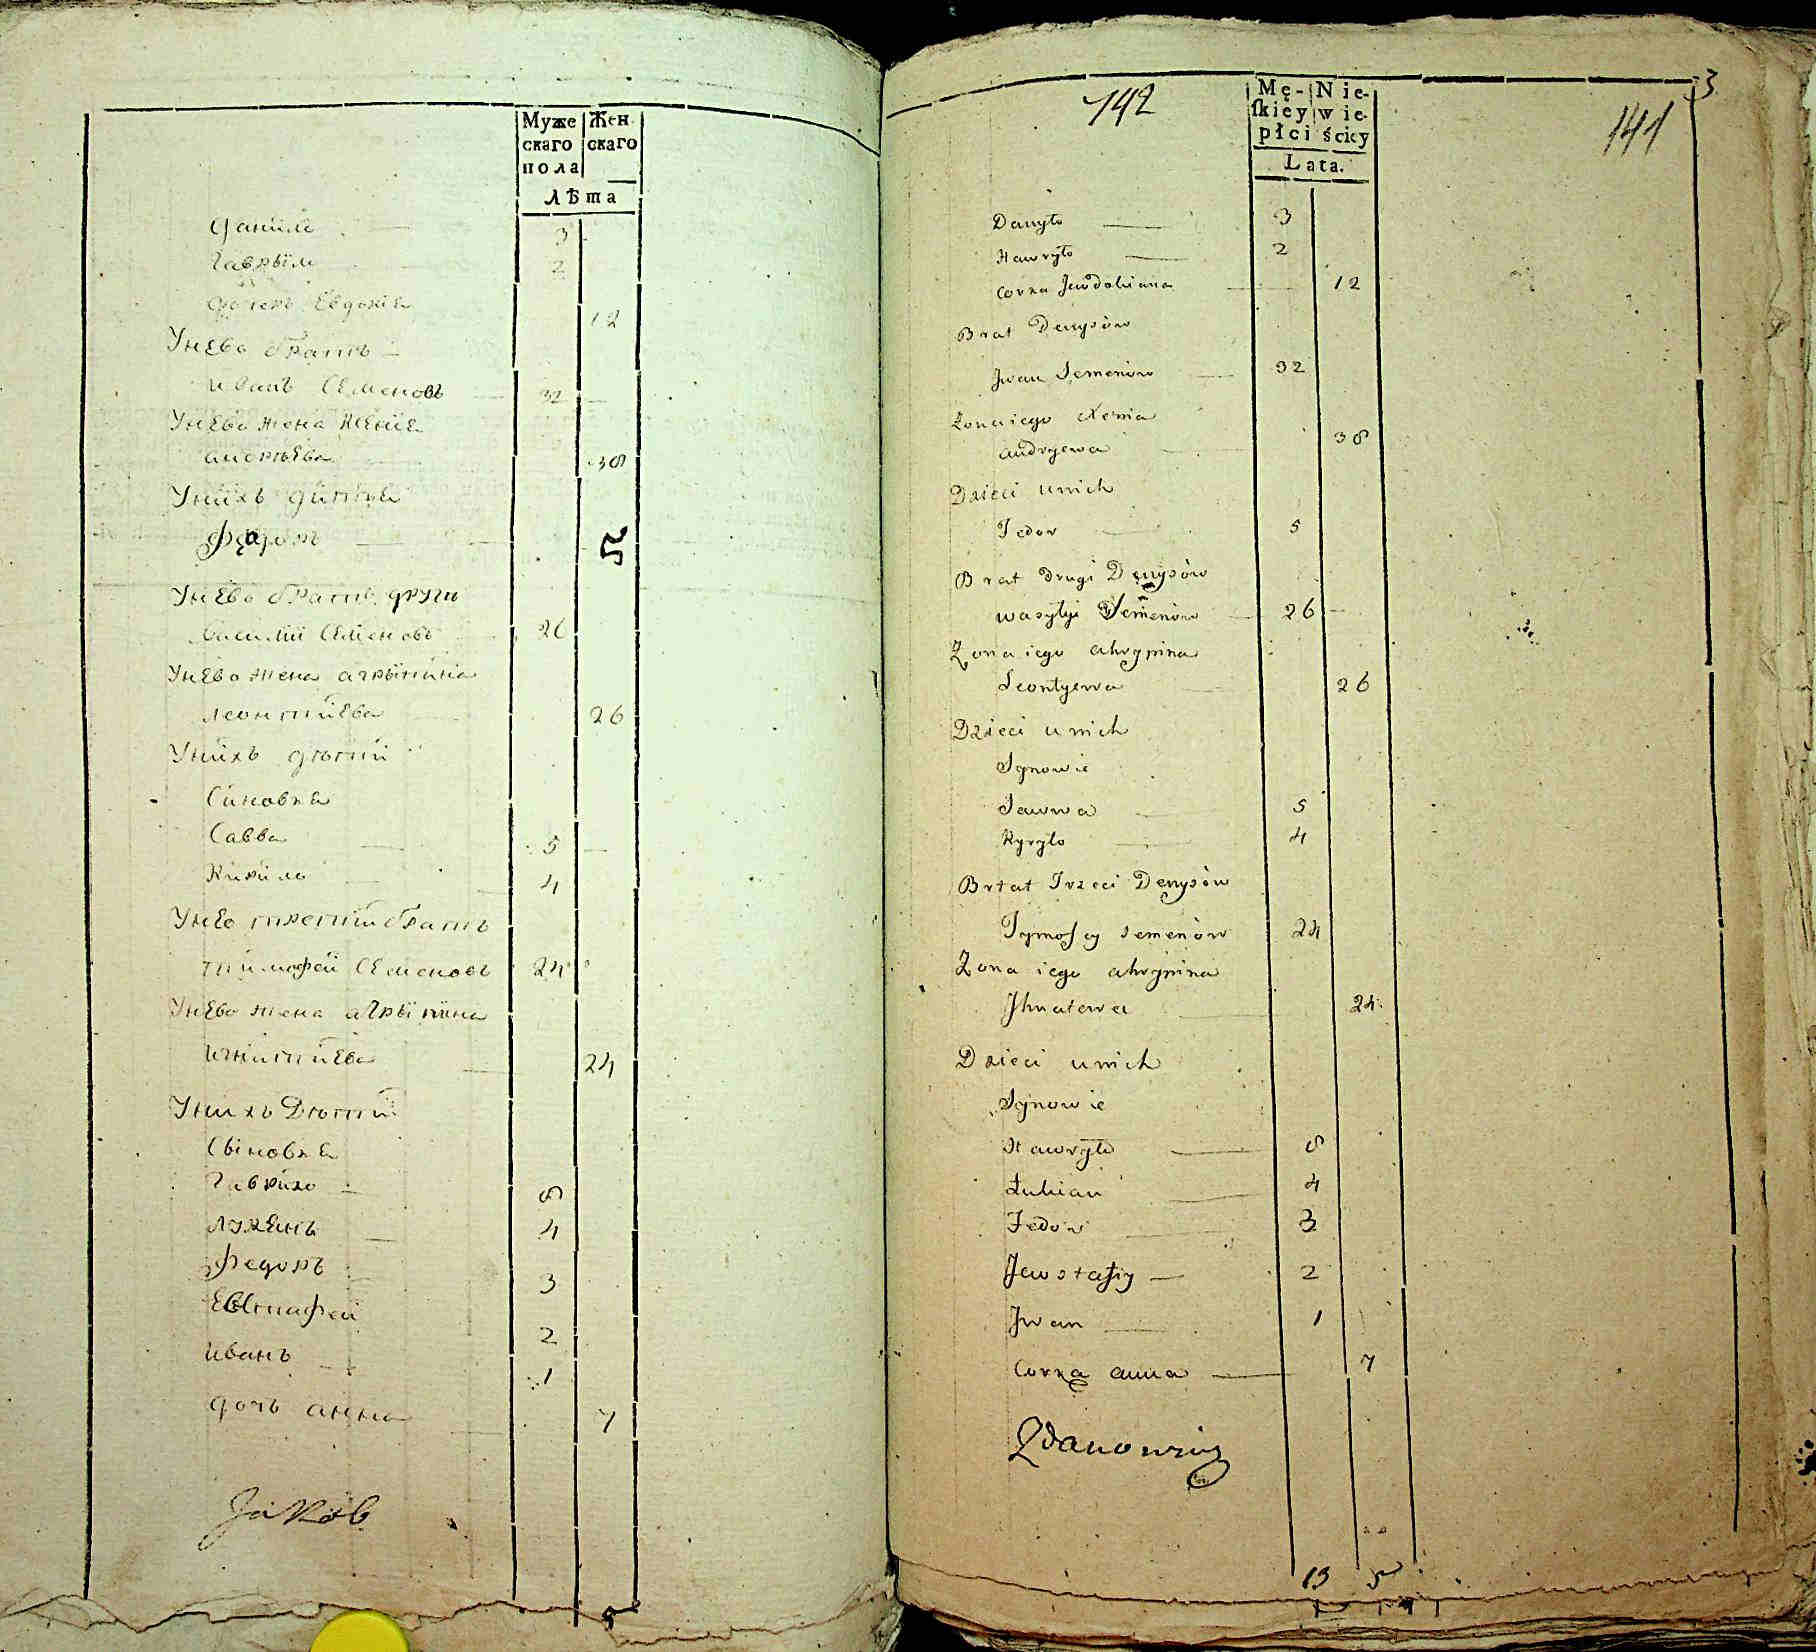 Муже Жен
скаго скаго
пола
лѣта
Даниле 3
Гаврыло 2
дочекъ Евдокия 12
Унево братъ
Иванъ Семеновъ 32
Унево жена Ксения
андреева 38
Унихъ дитки
Федоръ 5
Унево братъ други
Василий Семеновъ 26
Унево жена агрыпина
леонтийева 26
Унихъ дютий
Синовья
Савва 5
Кирило 4
Унево третий братъ
тимофей Семеновъ 24
Унево жена агрыпина
игнатиева 24
Унихъ Дютий
Сыновья
Гаврило 8
лукянъ 4
Федоръ 3
Евстафей 2
иванъ 1
дочъ анна 7
Jakob
5
142
Mę- Nie-
skiéy wie-
płci ściey
Lata.
3
141
Danyło 3
Hawryło 2
Corka Jewdokiana 12
Brat Denysów
Jwan Semenów 32
Zona iego Xenia
andryewa 38
Dzieci unich
Fedor 5
Brat drugi Denysów
wasylyi Semenów 26
Zona iego ahrypina
Leontyewa 26
Dzieci unich
Synowie
Sawwa 5
Kyryło 4
Brtat Trzeci Denysów
Tymofey semenów 24
Zona iego ahrypina
Jhnatewa 24
Dzieci unich
Synowie
Hawryło 8
Łukian 4
Fedor 3
Jewstafiy 2
Jwan 1
Corka anna 7
Zdanowicz
13 5